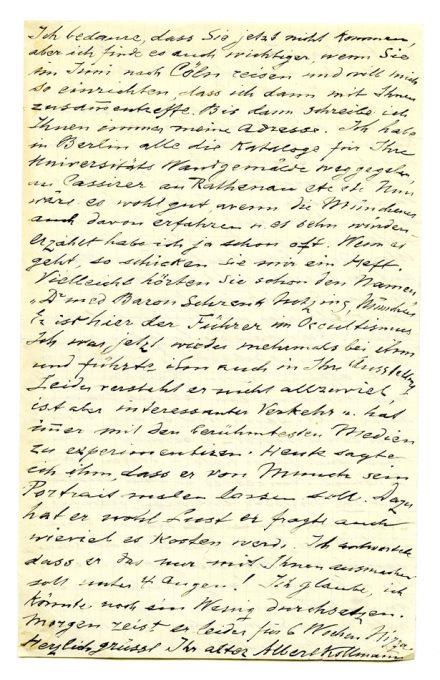 Ich bedaure, dass Sie jetzt nicht kommen,
aber ich finde es auch wichtiger, wenn Sie
im Juni nach Cöln reisen und will mich
so einrichten, dass ich dann mit Ihnen
zusammentreffe. Bis dann schreibe ich
Ihnen immer meine Adresse. Ich habe
in Berlin alle die Kataloge für Ihre
Universitäts Wandgemälde weggegeben
an Cassirer an Rathenau etc etc. Nun
wäre es wohl gut, wenn die Münchener
auch davon erfahren u. es sehn würden
erzählt habe ich ja schon oft. Wenn es
geht, so schicken Sie mir ein Heft.
Vielleicht hörten Sie schon den Namen
„Dr med Baron Schrenk Notzing, München
Er ist hier der Führer im Occultismus
Ich war jetzt wieder mehrmals bei ihm
und führte ihn auch in Ihre Ausstellung
Leider versteht er nicht allzuviel,
ist aber interessanter Verkehr u. hat
immer mit den berühmtesten Medien
zu experimentiren. Heute sagte
ich ihm, dass er von Munch sein
Portrait malen lassen soll. Dazu
hat er wohl Lust er fragte auch
wieviel es kosten werde. Ich antwortete
dass er das nur mit Ihnen ausmachen
soll unter 4 Augen! Ich glaube, ich
könnte noch ein Wenig durchsetzen.
Morgen reist er leider für 6 Wochen Nizza.
Herzlich grüsst Ihr alter Albert Kollmann